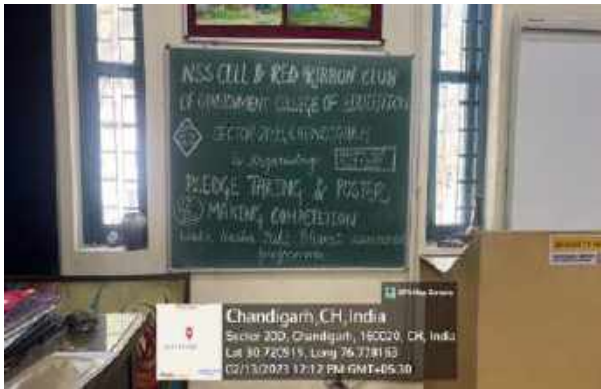 NSS CELL & RED RIBBON CLUB
OF GOVERNMENT COLLEGE OF EDUCATION
SECTOR-20D, CHANDIGARH
is organising
PLEDGE TAKING & POSTER
MAKING COMPETITION
under Nasha Mukt Bharat
programme
GPS Map Camera
Chandigarh, CH, India
Sector 20D, Chandigarh, 160020, CH, India
Lat 30.720915, Long 76.778163
02/13/2023 12:12 PM GMT+05:30